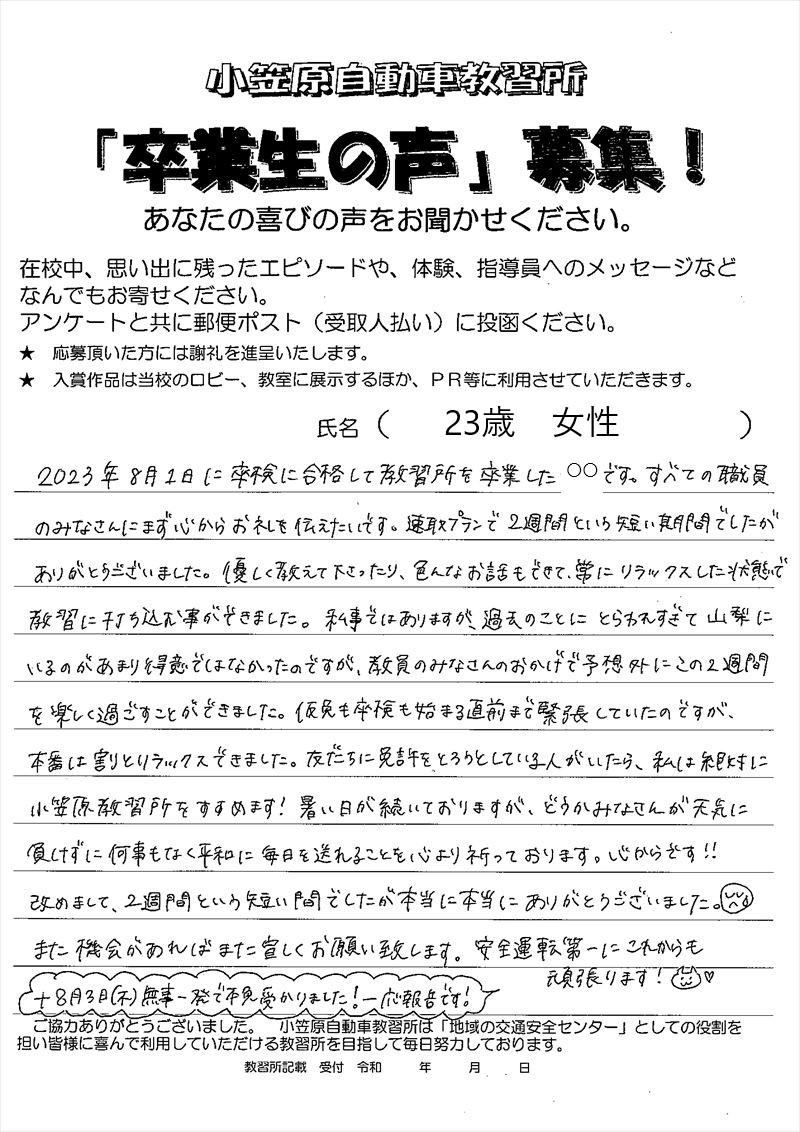 小笠原自動車教習所
「卒業生の声」募集！
あなたの喜びの声をお聞かせください。
在校中、思い出に残ったエピソードや、体験、指導員へのメッセージなど
なんでもお寄せください。
アンケートと共に郵便ポスト（受取人払い）に投函ください。
★ 応募頂いた方には謝礼を進呈いたします。
★ 入賞作品は当校のロビー、教室に展示するほか、ＰＲ等に利用させていただきます。
氏名（ 23歳 女性 ）
2023年8月1日に卒検に合格して教習所を卒業した○○です。すべての職員
のみなさんにまず心からお礼を伝えたいです。速取プランで2週間という短い期間でしたが
ありがとうございました。優しく教えて下さったり、色んなお話もできて、常にリラックスした状態で
教習に打ち込む事ができました。私事ではありますが、過去のことにとらわれすぎて山梨に
いるのがあまり得意ではなかったのですが、教員のみなさんのおかげで予想外にこの2週間
を楽しく過ごすことができました。仮免も卒検も始まる直前まで緊張していたのですが、
本番は割とリラックスできました。友だちに免許をとろうとしている人がいたら、私は絶対に
小笠原教習所をすすめます！暑い日が続いておりますが、どうかみなさんが天気に
負けずに何事もなく平和に毎日を送れることを心より祈っております。心からです!!
改めまして、2週間という短い間でしたが本当に本当にありがとうございました。
また機会があればまた宜しくお願い致します。安全運転第一にこれからも
頑張ります！♡
+8月3日(木)無事一発で本免受かりました！一応報告です！
ご協力ありがとうございました。 小笠原自動車教習所は「地域の交通安全センター」としての役割を
担い皆様に喜んで利用していただける教習所を目指して毎日努力しております。
教習所記載 受付 令和 年 月 日